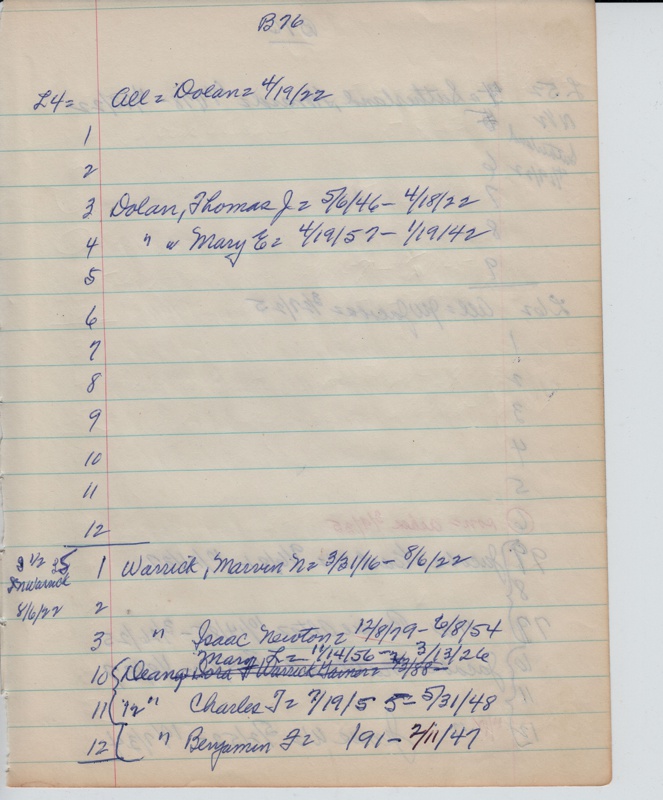 B76
L4= All = Dolan = 4/19/22
1
2
3 Dolan, Thomas J = 5/6/46 – 4/18/22
4 " " Mary E = 4/19/57 – 1/19/42
5
6
7
8
9
10
11
12
S 1/2 5 1 Warrick, Marvin N = 3/31/16 – 8/6/22
Warrick
8/6/22 2
3 " Isaac Newton = 12/8/79 – 6/8/54
Mary L = 11/14/56 – 3/13/26
10 Dean, Dora F Warrick
11 " " Charles T = 7/19/55 – 5/31/48
12 " Benjamin F = /91 – 2/11/47